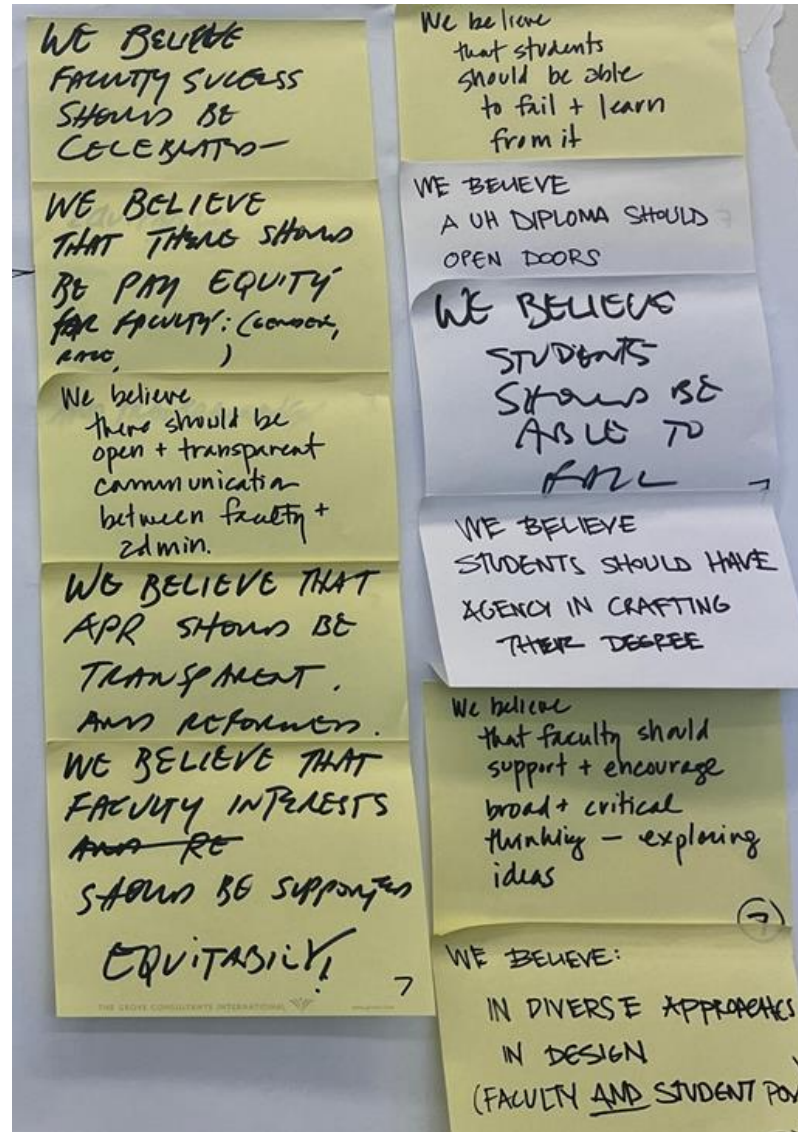 WE BELIEVE
FACULTY SUCCESS
SHOULD BE
CELEBRATED—
WE BELIEVE
THAT THERE SHOULD
BE PAY EQUITY
FOR FACULTY: (GENDER,
RACE, )
We believe
there should be
open + transparent
communication
between faculty +
admin.
WE BELIEVE THAT
APR SHOULD BE
TRANSPARENT.
AND REFORMED.
WE BELIEVE THAT
FACULTY INTERESTS
AND RE
SHOULD BE SUPPORTED
EQUITABLY!
7
THE GROVE CONSULTANTS INTERNATIONAL
We believe
that students
should be able
to fail + learn
from it
WE BELIEVE
A UH DIPLOMA SHOULD
OPEN DOORS
WE BELIEVE
STUDENTS
SHOULD BE
ABLE TO
FAIL
7
WE BELIEVE
STUDENTS SHOULD HAVE
AGENCY IN CRAFTING
THEIR DEGREE
We believe
that faculty should
support + encourage
broad + critical
thinking — exploring
ideas
7
WE BELIEVE:
IN DIVERSE APPROACHES
IN DESIGN
(FACULTY AND STUDENT